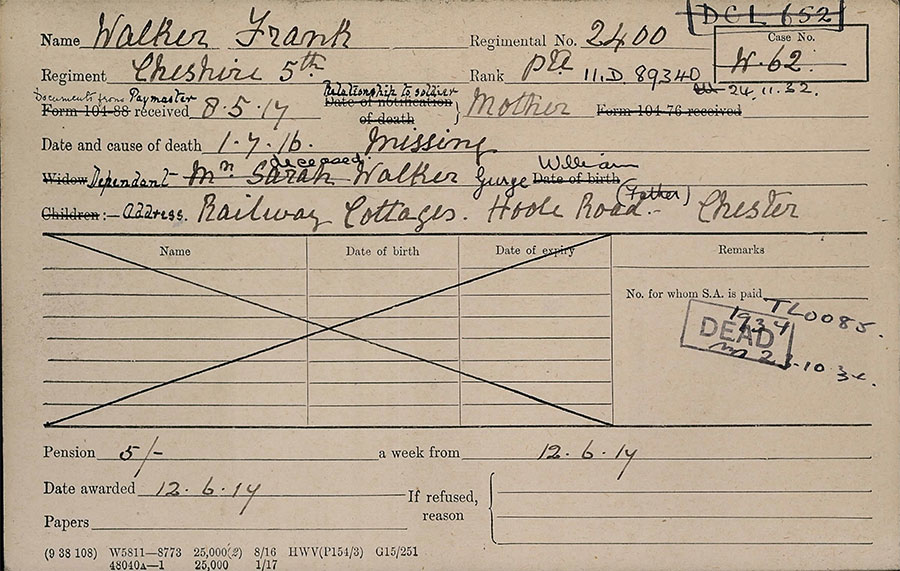 DCL 652
Name Walker Frank Regimental No. 2400 Case No. W.62
Regiment Cheshire 5th Rank Pte 11.D 89340
24.11.32.
Documents from Paymaster Relationship to soldier
Form 104-88 received 8.5.17 Date of notification of death } Mother Form 104-76 received
Date and cause of death 1.7.16. Missing
deceased William
Widow Dependant Mrs Sarah Walker Date of birth (Father)
Children:— address. Railway Cottages. Hoole Road.- Chester
Name Date of birth Date of expiry Remarks
No. for whom S.A. is paid
TL0085.
1934
DEAD
23.10.34.
Pension 5/- a week from 12.6.17
Date awarded 12.6.17
If refused, reason
Papers
(9 38 108) W5811—8773 25,000(2) 8/16 HWV(P154/3) G15/251
48040A—1 25,000 1/17